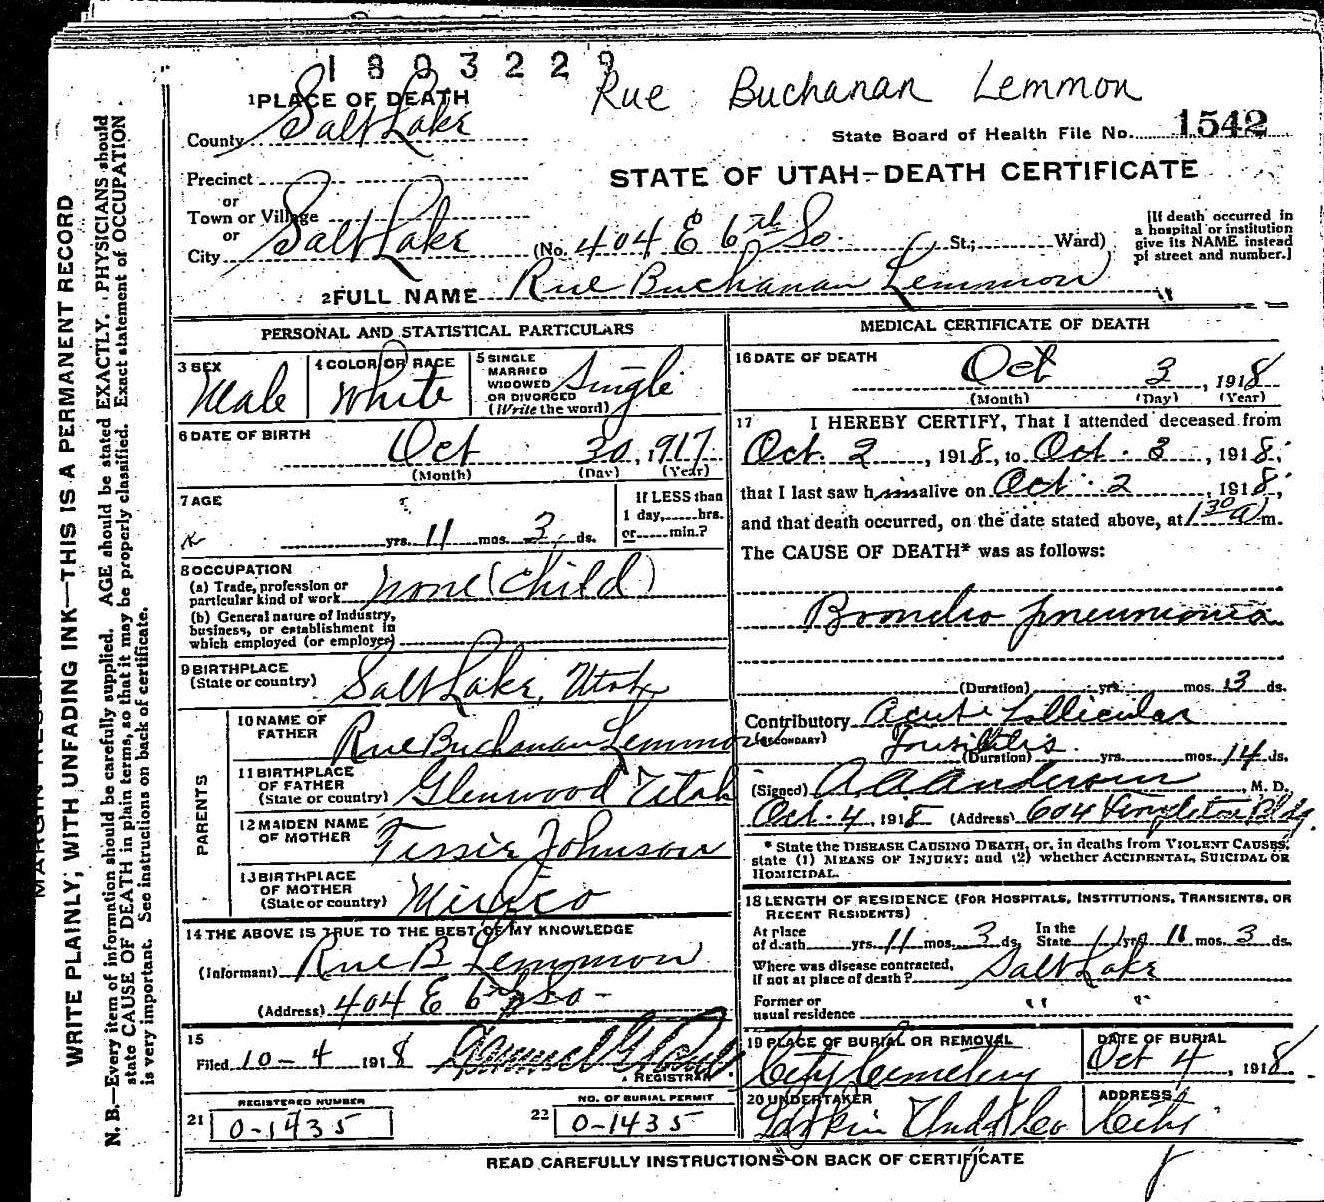 1803229
Rue Buchanan Lemmon
1 PLACE OF DEATH
County Salt Lake
State Board of Health File No. 1542
Precinct
or
Town or Village
or
City Salt Lake
STATE OF UTAH-DEATH CERTIFICATE
(No. 404 E 6th So. St.; Ward)
[If death occurred in
a hospital or institution
give its NAME instead
of street and number.]
2 FULL NAME Rue Buchanan Lemmon
PERSONAL AND STATISTICAL PARTICULARS
3 SEX
Male
4 COLOR OR RACE
White
5 SINGLE
MARRIED
WIDOWED
OR DIVORCED
(Write the word)
Single
6 DATE OF BIRTH
Oct 30, 1917
(Month) (Day) (Year)
7 AGE
yrs. 11 mos. 3 ds.
If LESS than
1 day, hrs.
or min.?
8 OCCUPATION
(a) Trade, profession or
particular kind of work none (child)
(b) General nature of Industry,
business, or establishment in
which employed (or employer)
9 BIRTHPLACE
(State or country) Salt Lake, Utah
PARENTS
10 NAME OF
FATHER Rue Buchanan Lemmon
11 BIRTHPLACE
OF FATHER
(State or country) Glenwood Utah
12 MAIDEN NAME
OF MOTHER Tessie Johnson
13 BIRTHPLACE
OF MOTHER
(State or country) Mexico
14 THE ABOVE IS TRUE TO THE BEST OF MY KNOWLEDGE
(Informant) Rue B Lemmon
(Address) 404 E 6th So -
15
Filed 10-4 1918
REGISTRAR
REGISTERED NUMBER
21 0-1435
NO. OF BURIAL PERMIT
22 0-1435
MEDICAL CERTIFICATE OF DEATH
16 DATE OF DEATH
Oct 3, 1918
(Month) (Day) (Year)
17 I HEREBY CERTIFY, That I attended deceased from
Oct. 2, 1918, to Oct. 3, 1918;
that I last saw him alive on Oct. 2, 1918;
and that death occurred, on the date stated above, at 1 30 a m.
The CAUSE OF DEATH* was as follows:
Broncho pneumonia
(Duration) yrs. mos. 3 ds.
Contributory Acute Follicular
(SECONDARY) Tonsilitis
(Duration) yrs. mos. 14 ds.
(Signed) A A Anderson, M. D.
Oct. 4, 1918 (Address) 604 Templeton Bldg.
* State the DISEASE CAUSING DEATH, or, in deaths from VIOLENT CAUSES,
state (1) MEANS OF INJURY; and (2) whether ACCIDENTAL, SUICIDAL OR
HOMICIDAL.
18 LENGTH OF RESIDENCE (FOR HOSPITALS, INSTITUTIONS, TRANSIENTS, OR
RECENT RESIDENTS)
At place
of death yrs. 11 mos. 3 ds. In the
State yrs. 11 mos. 3 ds.
Where was disease contracted,
if not at place of death? Salt Lake
Former or
usual residence " "
19 PLACE OF BURIAL OR REMOVAL
City Cemetery
DATE OF BURIAL
Oct 4, 1918
20 UNDERTAKER
Larkin Undt Co
ADDRESS
City
READ CAREFULLY INSTRUCTIONS ON BACK OF CERTIFICATE
WRITE PLAINLY, WITH UNFADING INK—THIS IS A PERMANENT RECORD
N. B.—Every item of information should be carefully supplied. AGE should be stated EXACTLY. PHYSICIANS should
state CAUSE OF DEATH in plain terms, so that it may be properly classified. Exact statement of OCCUPATION
is very important. See instructions on back of certificate.